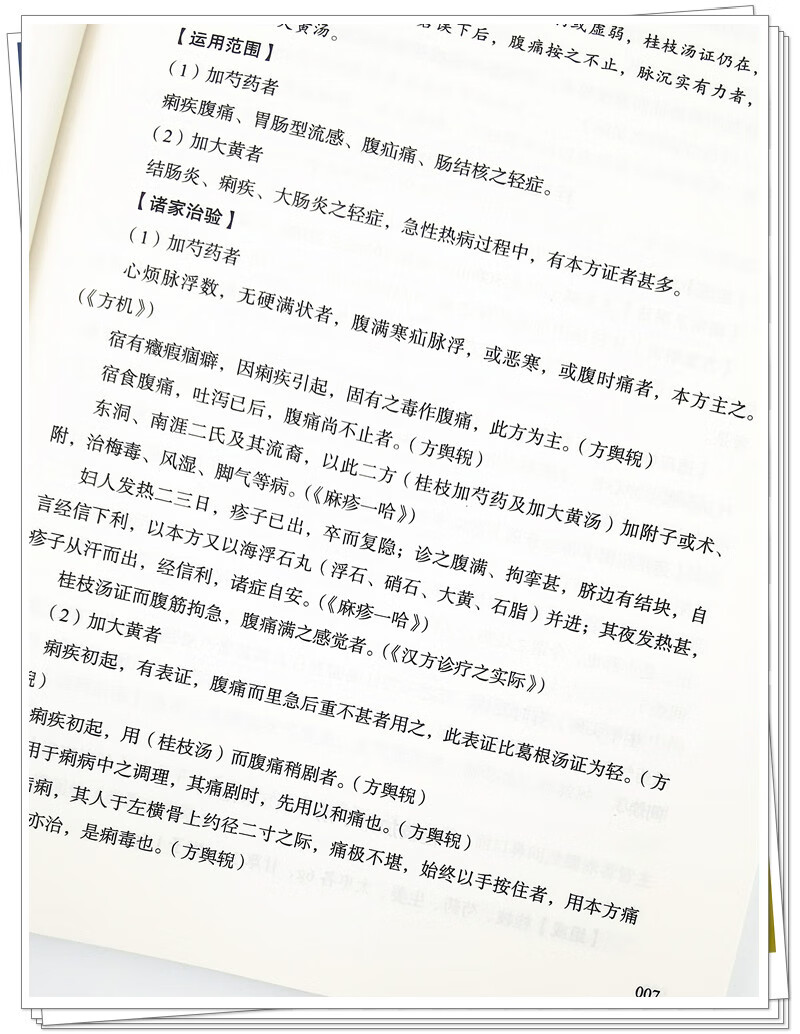 或虚弱，桂枝汤证仍在，
误下后，腹痛按之不止，脉沉实有力者，
大黄汤。
【运用范围】
（1）加芍药者
痢疾腹痛、胃肠型流感、腹疝痛、肠结核之轻症。
（2）加大黄者
结肠炎、痢疾、大肠炎之轻症，急性热病过程中，有本方证者甚多。
【诸家治验】
（1）加芍药者
心烦脉浮数，无硬满状者，腹满寒疝脉浮，或恶寒，或腹时痛者，本方主之。
（《方机》）
宿有癥瘕痼癖，因痢疾引起，固有之毒作腹痛，此方为主。（方舆𫐐）
宿食腹痛，吐泻已后，腹痛尚不止者。（方舆𫐐）
东洞、南涯二氏及其流裔，以此二方（桂枝加芍药及加大黄汤）加附子或术、
附，治梅毒、风湿、脚气等病。（《麻疹一哈》）
妇人发热二三日，疹子已出，卒而复隐；诊之腹满、拘挛甚，脐边有结块，自
言经信下利，以本方又以海浮石丸（浮石、硝石、大黄、石脂）并进；其夜发热甚，
疹子从汗而出，经信利，诸症自安。（《麻疹一哈》）
桂枝汤证而腹筋拘急，腹痛满之感觉者。（《汉方诊疗之实际》）
（2）加大黄者
痢疾初起，有表证，腹痛而里急后重不甚者用之，此表证比葛根汤证为轻。（方
𫐐）
痢疾初起，用（桂枝汤）而腹痛稍剧者。（方舆𫐐）
用于痢病中之调理，其痛剧时，先用以和痛也。（方舆𫐐）
痢，其人于左横骨上约径二寸之际，痛极不堪，始终以手按住者，用本方痛
亦治，是痢毒也。（方舆𫐐）
007